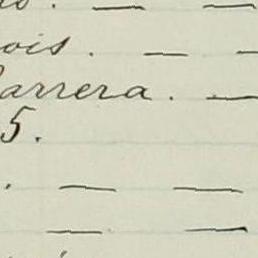 ois. — —
arrera. —
5.
. — —
— —